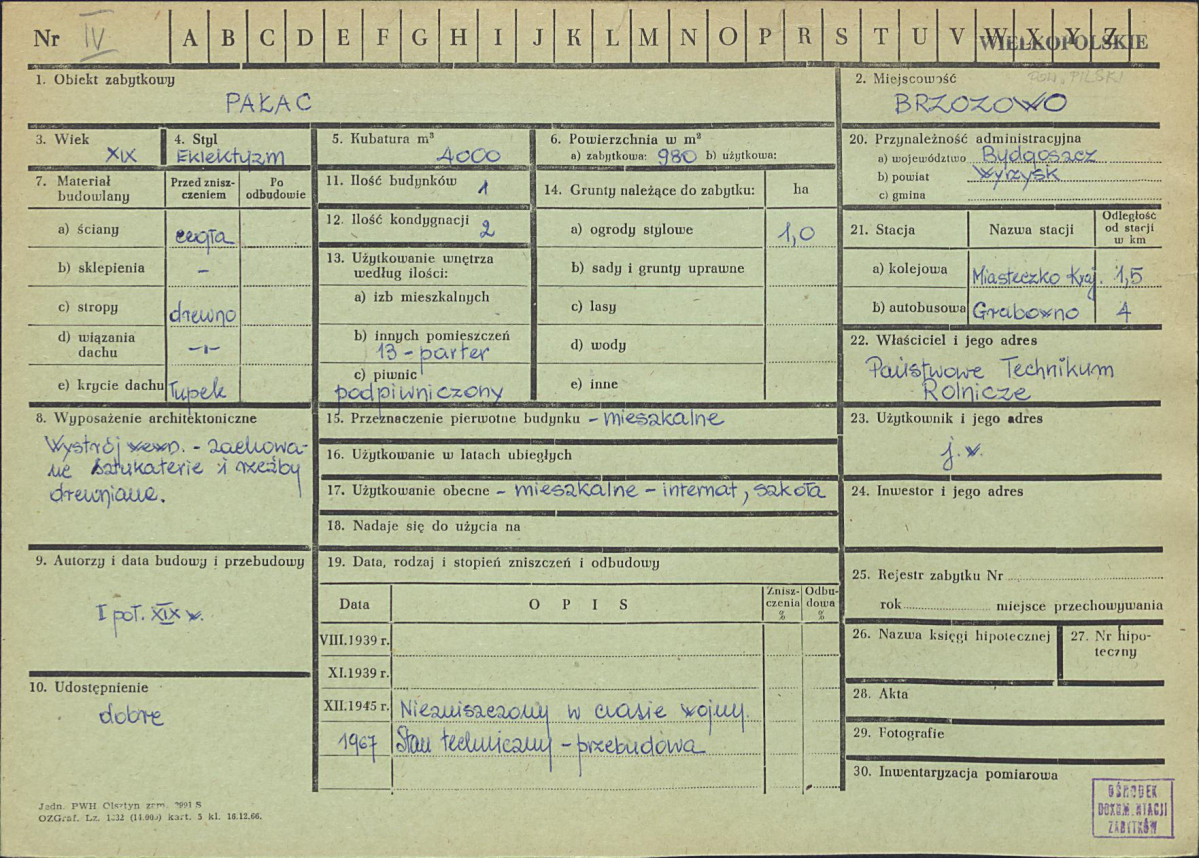 Nr IV A B C D E F G H I J K L M N O P R S T U V W X Y Z
WIELKOPOLSKIE
1. Obiekt zabytkowy
PAŁAC
2. Miejscowość
POW. PILSKI
BRZOZOWO
3. Wiek
XIX
4. Styl
Eklektyzm
5. Kubatura m³
4000
6. Powierzchnia w m²
a) zabytkowa: 980 b) użytkowa:
20. Przynależność administracyjna
a) województwo Bydgoszcz
b) powiat Wyrzysk
c) gmina
7. Materiał budowlany
Przed znisz-
czeniem
Po
odbudowie
a) ściany cegła
b) sklepienia –
c) stropy drewno
d) wiązania
dachu –"–
e) krycie dachu łupek
11. Ilość budynków 1
12. Ilość kondygnacji 2
13. Użytkowanie wnętrza
według ilości:
a) izb mieszkalnych
b) innych pomieszczeń
13 – parter
c) piwnic
podpiwniczony
14. Grunty należące do zabytku: ha
a) ogrody stylowe 1,0
b) sady i grunty uprawne
c) lasy
d) wody
e) inne
21. Stacja Nazwa stacji
Odległość
od stacji
w km
a) kolejowa Miasteczko Kraj. 1,5
b) autobusowa Grabowno 4
22. Właściciel i jego adres
Państwowe Technikum
Rolnicze
8. Wyposażenie architektoniczne
Wystrój wewn. – zachowa-
ne sztukaterie i rzeźby
drewniane.
15. Przeznaczenie pierwotne budynku – mieszkalne
16. Użytkowanie w latach ubiegłych
17. Użytkowanie obecne – mieszkalne – internat, szkoła
18. Nadaje się do użycia na
23. Użytkownik i jego adres
j. w.
24. Inwestor i jego adres
9. Autorzy i data budowy i przebudowy
I poł. XIX w.
10. Udostępnienie
dobre
19. Data, rodzaj i stopień zniszczeń i odbudowy
Data OPIS
Znisz-
czenia
%
Odbu-
dowa
%
VIII.1939 r.
XI.1939 r.
XII.1945 r. Niezniszczony w czasie wojny.
1967 Stan techniczny – przebudowa
25. Rejestr zabytku Nr
rok miejsce przechowywania
26. Nazwa księgi hipotecznej
27. Nr hipo-
teczny
28. Akta
29. Fotografie
30. Inwentaryzacja pomiarowa
OŚRODEK
DOKUMENTACJI
ZABYTKÓW
Jedn. PWH Olsztyn zam. 2991 S
OZGraf. Lz. kart. 5 kl. 16.12.66.